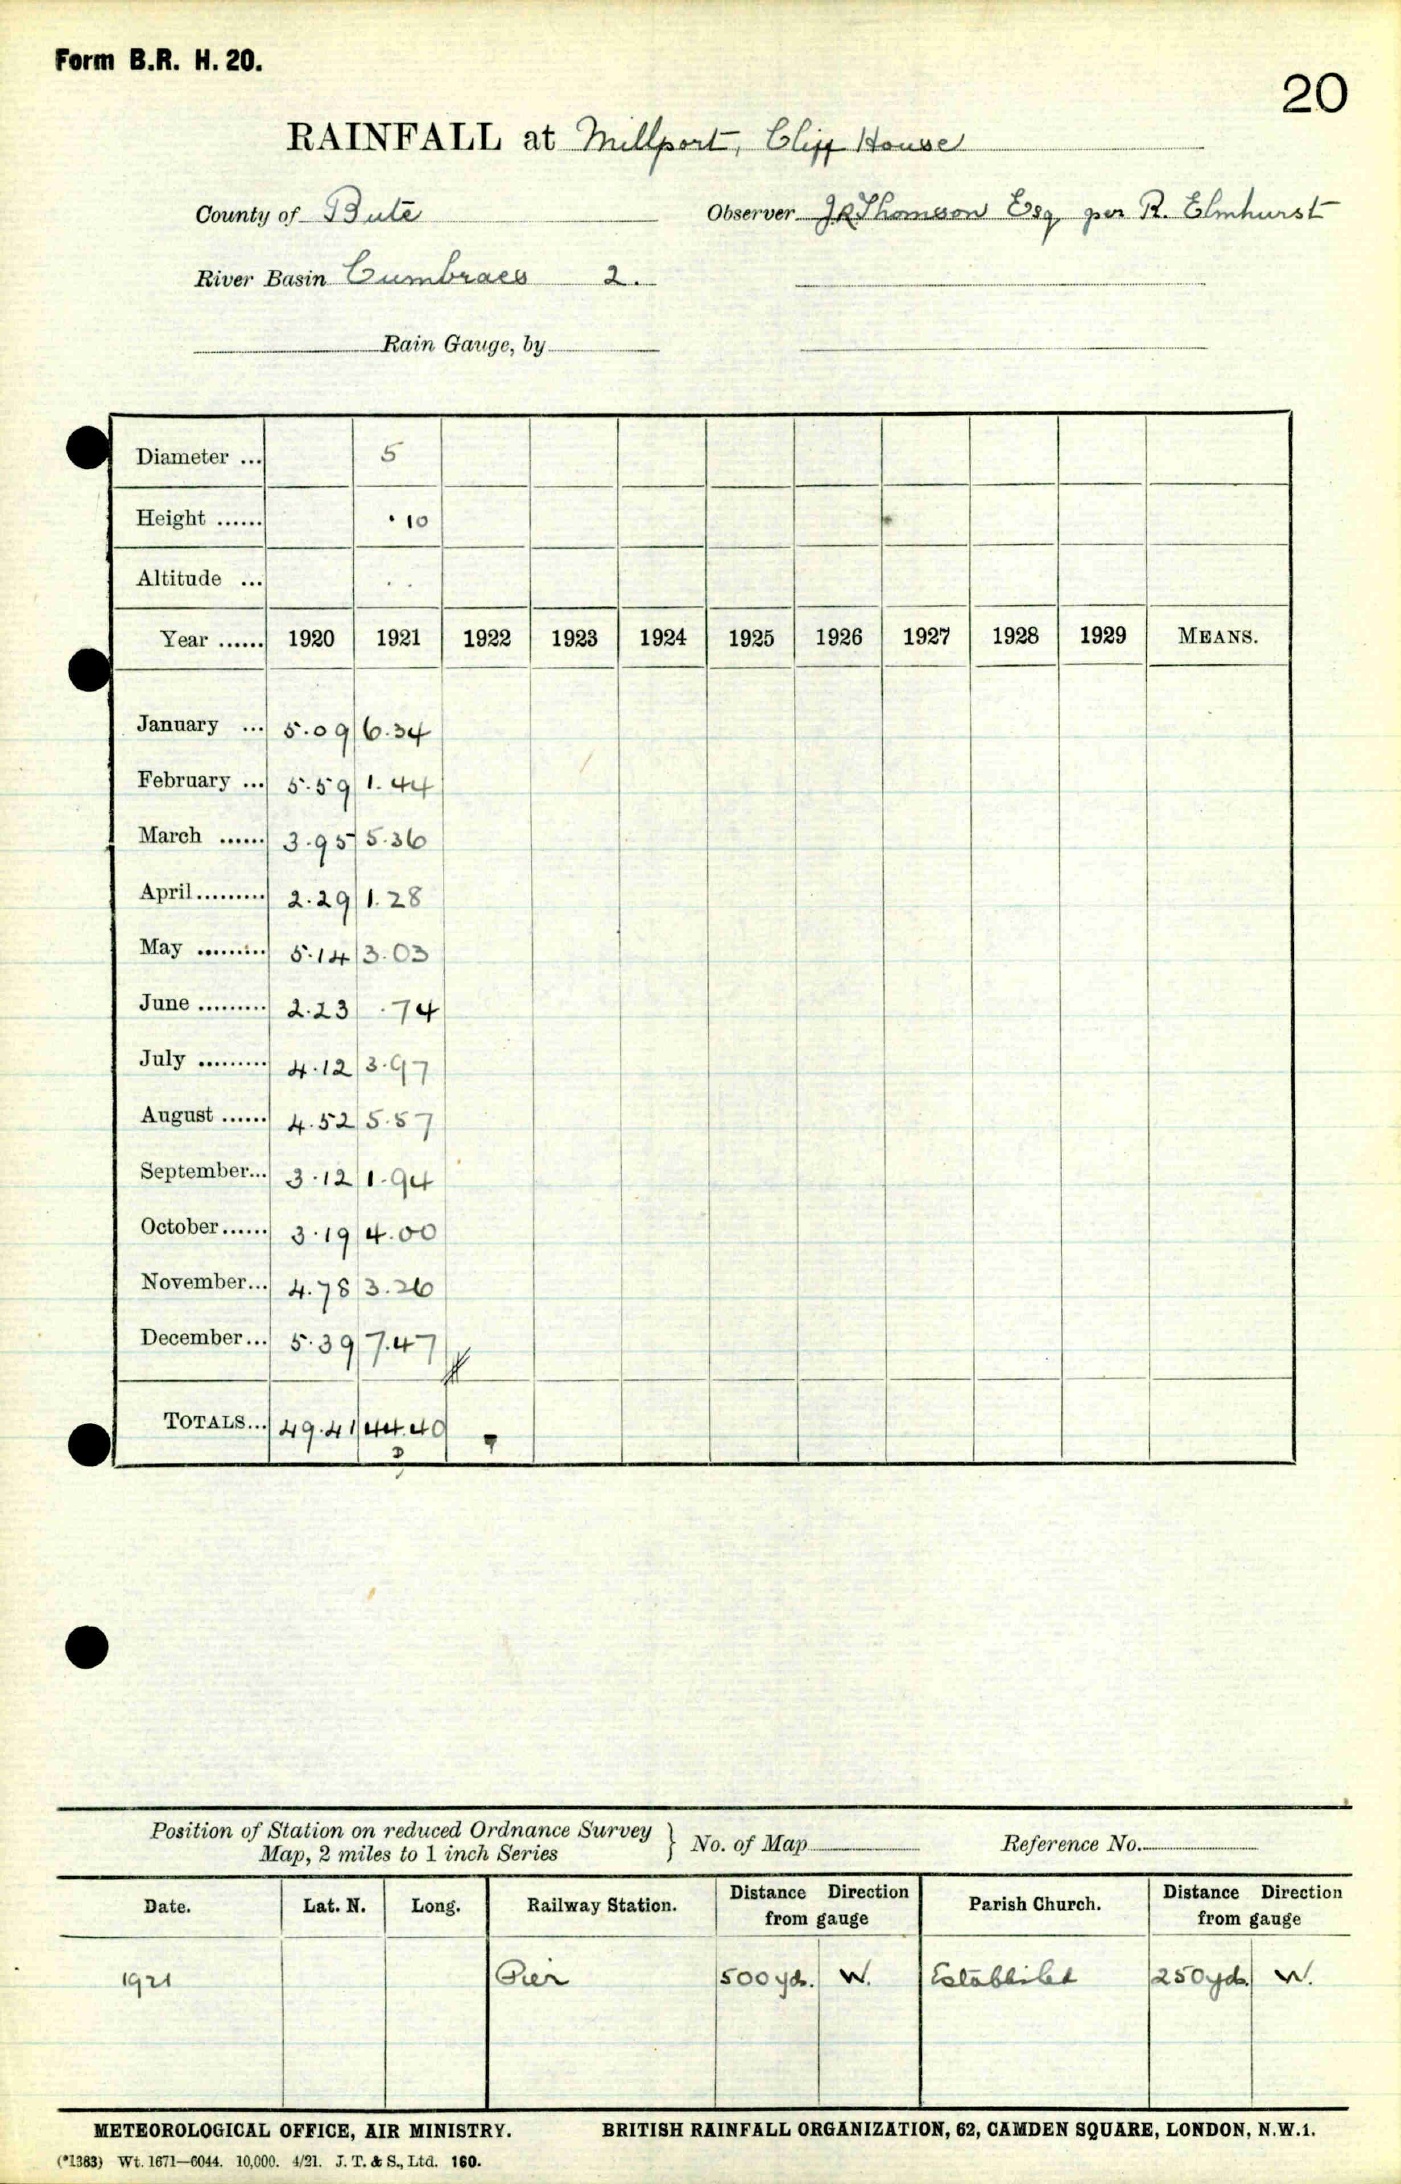 Form B.R. H. 20.
20
RAINFALL at Millport, Cliff House
County of Bute Observer J.R. Thomson Esq per R. Elmhurst
River Basin Cumbraes 2.
Rain Gauge, by
Diameter ... 5
Height ...... ·10
Altitude ... . .
Year ...... 1920 1921 1922 1923 1924 1925 1926 1927 1928 1929 MEANS.
January ... 5.09 6.34
February ... 5.59 1.44
March ...... 3.95 5.36
April......... 2.29 1.28
May ......... 5.14 3.03
June ......... 2.23 .74
July ......... 4.12 3.97
August ...... 4.52 5.57
September... 3.12 1.94
October...... 3.19 4.00
November... 4.78 3.26
December... 5.39 7.47
TOTALS... 49.41 44.40
Position of Station on reduced Ordnance Survey
Map, 2 miles to 1 inch Series } No. of Map Reference No.
Date. Lat. N. Long. Railway Station. Distance Direction from gauge Parish Church. Distance Direction from gauge
1921 Pier 500 yds. W. Established 250 yds. W.
METEOROLOGICAL OFFICE, AIR MINISTRY. BRITISH RAINFALL ORGANIZATION, 62, CAMDEN SQUARE, LONDON, N.W.1.
(*1383) Wt. 1671—6044. 10,000. 4/21. J. T. & S., Ltd. 160.